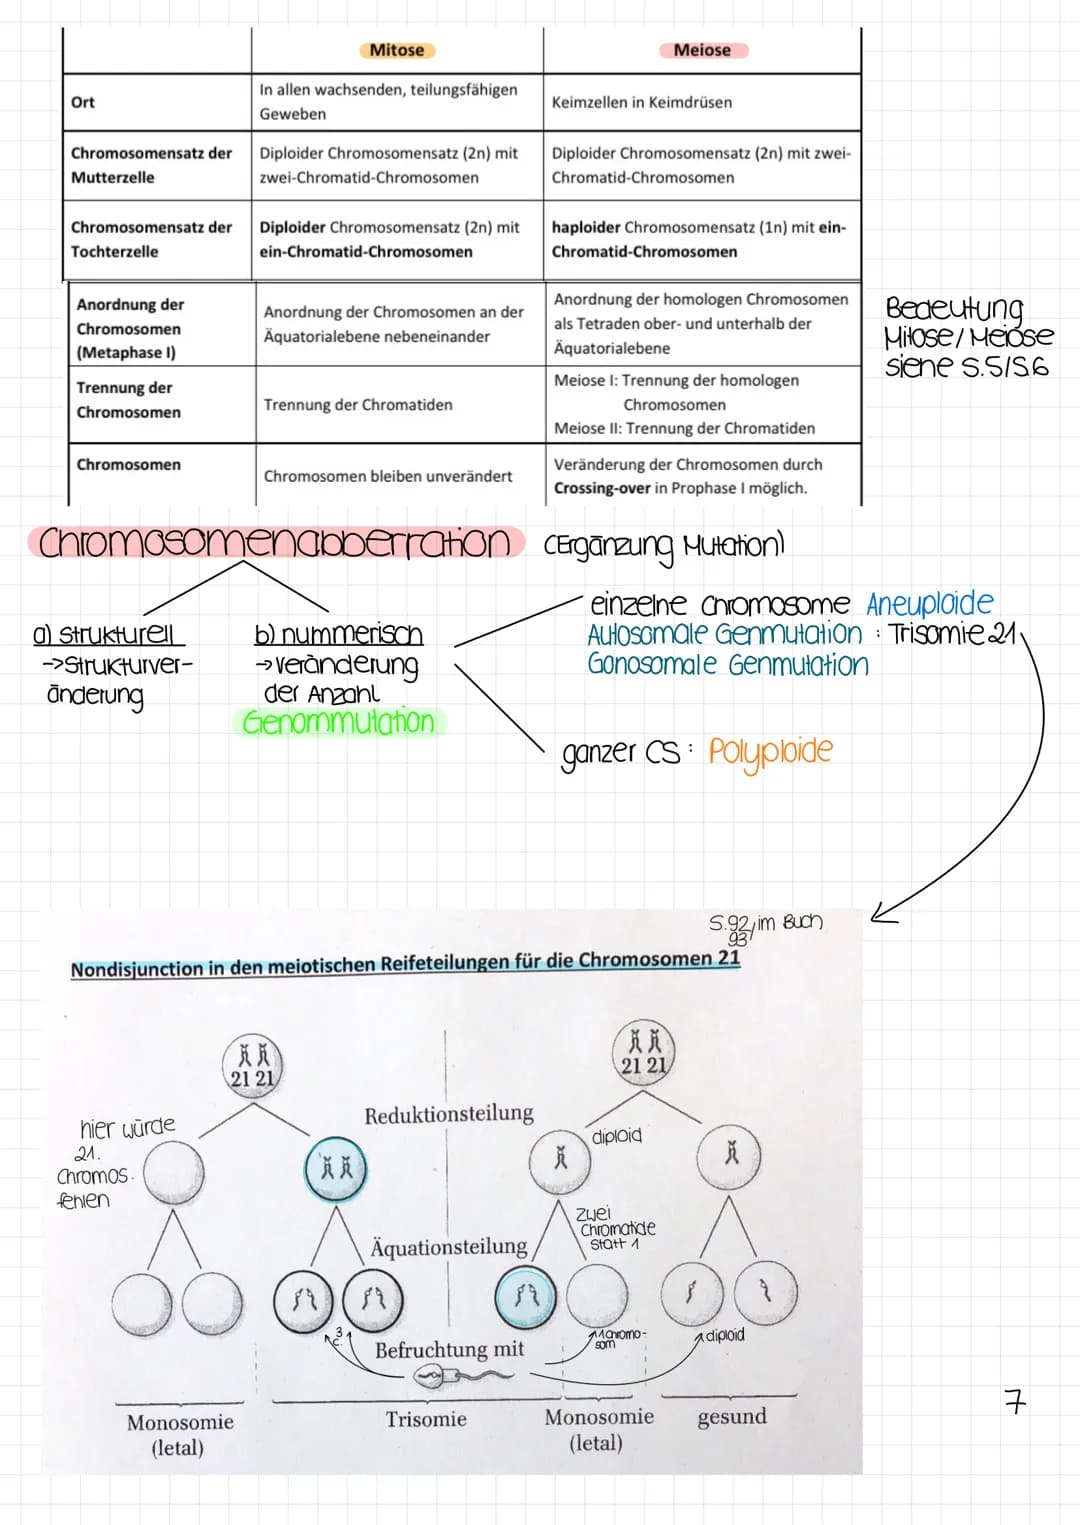 Mitose
Meiose
Ort
In allen wachsenden, teilungsfähigen
Geweben
Keimzellen in Keimdrüsen
Chromosomensatz der
Mutterzelle
Diploider Chromosomensatz (2n) mit
zwei-Chromatid-Chromosomen
Diploider Chromosomensatz (2n) mit zwei-
Chromatid-Chromosomen
Chromosomensatz der
Tochterzelle
Diploider Chromosomensatz (2n) mit
ein-Chromatid-Chromosomen
haploider Chromosomensatz (1n) mit ein-
Chromatid-Chromosomen
Anordnung der
Chromosomen
(Metaphase I)
Anordnung der Chromosomen an der
Äquatorialebene nebeneinander
Anordnung der homologen Chromosomen
als Tetraden ober- und unterhalb der
Äquatorialebene
Bedeutung
Mitose/Meiose
siehe S.5/S6
Trennung der
Chromosomen
Trennung der Chromatiden
Meiose I: Trennung der homologen
Chromosomen
Meiose II: Trennung der Chromatiden
Chromosomen
Chromosomen bleiben unverändert
Veränderung der Chromosomen durch
Crossing-over in Prophase I möglich.
Chromosomenabberration (Ergänzung Mutation)
a) strukturell
->Strukturver-
änderung
b) nummerisch
->Veränderung
der Anzahl
Genommutation
einzelne Chromosome Aneuploide
Autosomale Genmutation : Trisomie 21
Gonosomale Genmutation
ganzer CS: Polyploide
S.92, im Buch
93
Nondisjunction in den meiotischen Reifeteilungen für die Chromosomen 21
21 21
21 21
Reduktionsteilung
hier würde
21.
Chromos.
fehlen
diploid
zwei
Chromatide
statt 1
Äquationsteilung
3
c.
1 Chromo-
som
diploid
Befruchtung mit
Monosomie
(letal)
Trisomie
Monosomie
(letal)
gesund
7